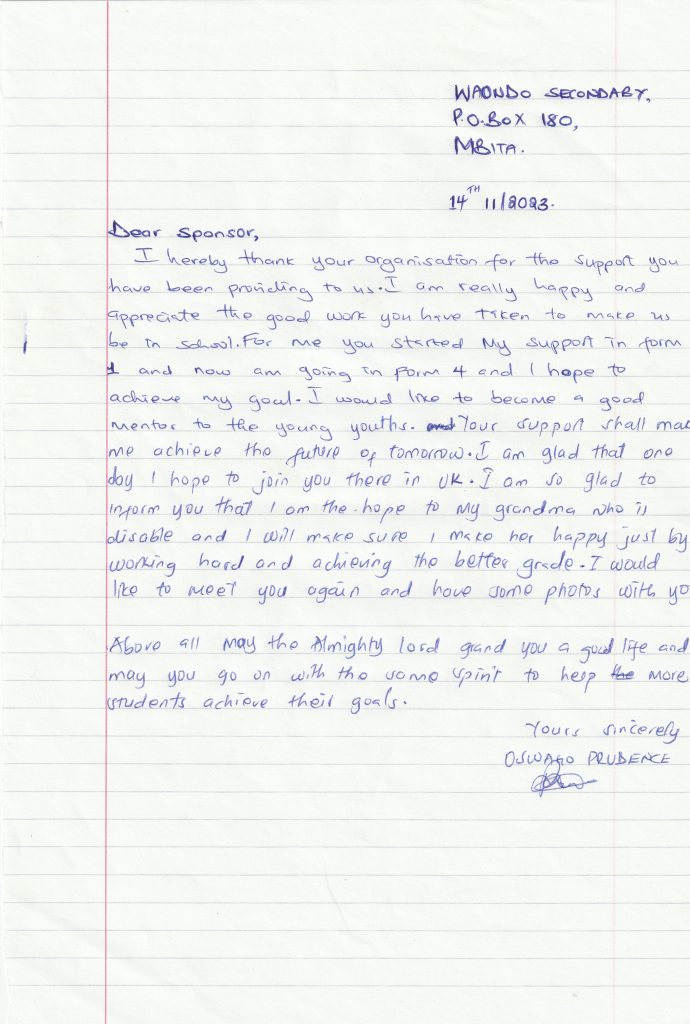 WAONDO SECONDARY,
P.O.BOX 180,
MBITA.
14TH 11/2023.
Dear Sponsor,
I hereby thank your organisation for the support you
have been providing to us. I am really happy and
appreciate the good work you have taken to make us
be in school. For me you started my support in form
1 and now am going in form 4 and I hope to
achieve my goal. I would like to become a good
mentor to the young youths. Your support shall mak
me achieve the future of tomorrow. I am glad that one
day I hope to join you there in UK. I am so glad to
inform you that I am the hope to my grandma who is
disable and I will make sure I make her happy just by
working hard and achieving the better grade. I would
like to meet you again and have some photos with yo
Above all may the Almighty lord grand you a good life and
may you go on with the same spirit to help the more
students achieve their goals.
Yours sincerely
OSWAGO PRUDENCE